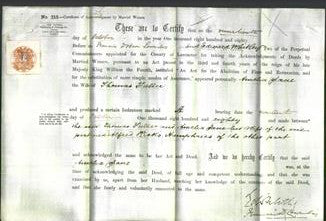 No. 215.—Certificate of Acknowledgment by Married Women.
These are to Certify that on the nineteenth
day of October in the year One thousand eight hundred and eighty
Before us Francis John Lowndes and Edward Whitley Two of the Perpetual
Commissioners appointed for the County of Lancaster for taking the Acknowledgments of Deeds by
Married Women, pursuant to an Act passed in the third and fourth years of the reign of His
late Majesty King William the Fourth, intituled "An Act for the Abolition of Fines and Recoveries, and
for the substitution of more simple modes of Assurance," appeared personally Amelia Jane the
Wife of Thomas
and produced a certain Indenture marked A bearing date the nineteenth
day of October One thousand eight hundred and eighty and made between
the said Thomas and Amelia Jane his Wife of the one
part and Humphreys of the other part
and acknowledged the same to be her Act and Deed. And we do hereby Certify that the said
Amelia Jane was at the
time of her acknowledging the said Deed, of full age and competent understanding, and that she was
examined by us, apart from her Husband, touching her knowledge of the contents of the said Deed,
and that she freely and voluntarily consented to the same.